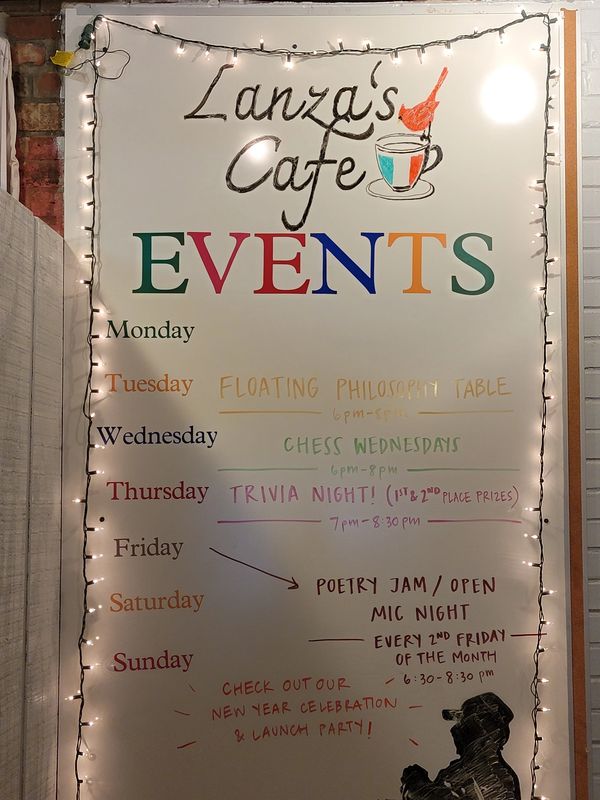 Lanza's
Cafe
EVENTS
Monday
Tuesday FLOATING PHILOSOPHY TABLE
6pm-8pm
Wednesday CHESS WEDNESDAYS
6pm-8pm
Thursday TRIVIA NIGHT! (1ST & 2ND PLACE PRIZES)
7pm-8:30pm
Friday
POETRY JAM / OPEN
Saturday
MIC NIGHT
EVERY 2ND FRIDAY
Sunday OF THE MONTH
6:30-8:30 pm
CHECK OUT OUR
NEW YEAR CELEBRATION
& LAUNCH PARTY!